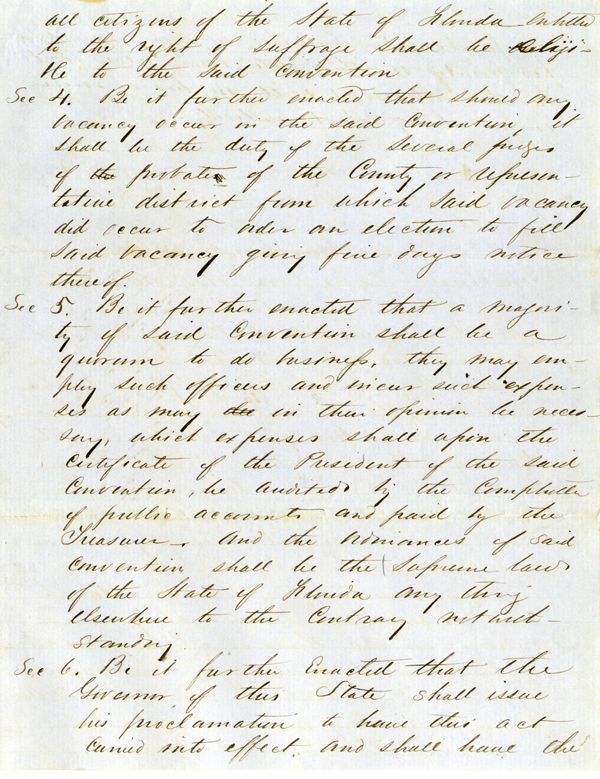 all citizens of the State of Florida entitled
to the right of suffrage shall be eligi-
ble to the said convention
Sec 4. Be it further enacted that should any
vacancy occur in the said Convention, it
shall be the duty of the several judges
of the probate of the County or represen-
tative district from which said vacancy
did occur to order an election to fill
said vacancy giving five days notice
thereof.
Sec 5. Be it further enacted that a majori-
ty of said Convention shall be a
quorum to do business, they may em-
ploy such officers and incur such expen-
ses as may in their opinion be neces-
sary, which expenses shall upon the
certificate of the President of the said
Convention, be audited by the Comptroller
of public accounts and paid by the
Treasurer. And the ordinances of said
convention shall be the supreme law
of the State of Florida any thing
elsewhere to the Contrary notwith-
standing.
Sec 6. Be it further Enacted that the
Governor of this State shall issue
his proclamation to have this act
carried into effect and shall have the